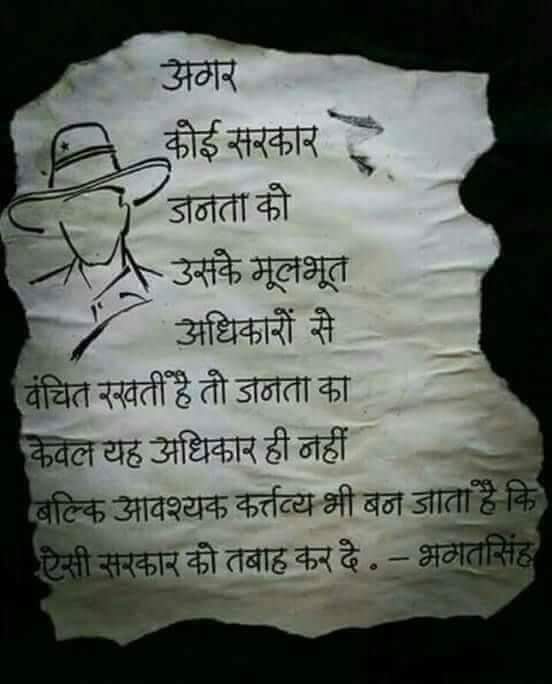 अगर
कोई सरकार
जनता को
उसके मूलभूत
अधिकारों से
वंचित रखती है तो जनता का
केवल यह अधिकार ही नहीं
बल्कि आवश्यक कर्त्तव्य भी बन जाता है कि
ऐसी सरकार को तबाह कर दे . – भगतसिंह